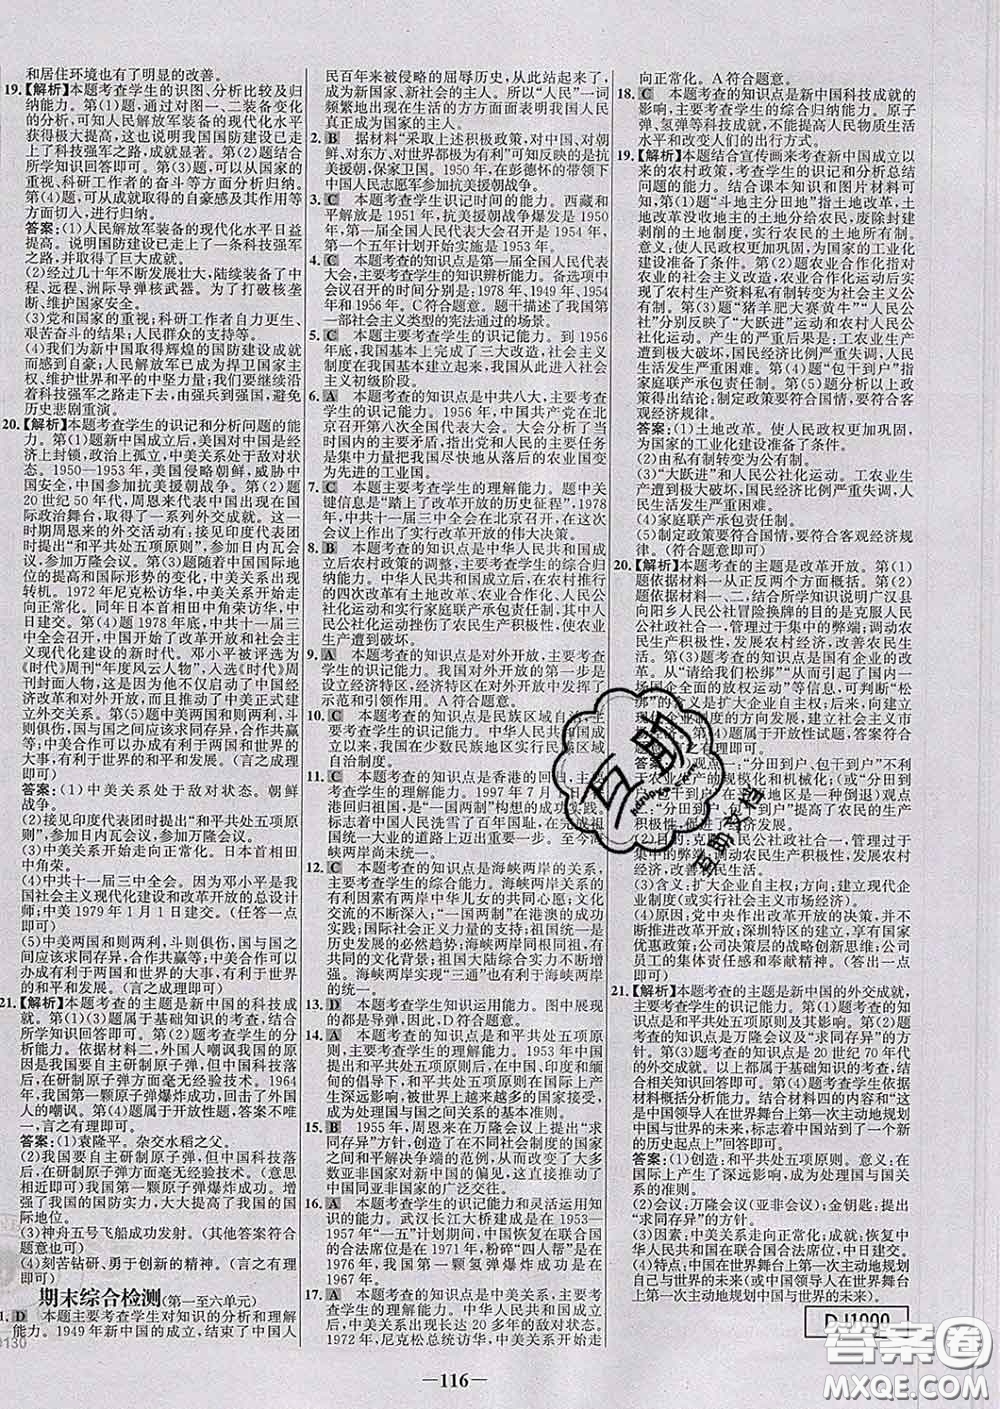 和居住环境也有了明显的改善。
19.【解析】本题考查学生的识图、分析比较及归
纳能力。第(1)题,通过对图一、二装备变化
的分析,可知人民解放军装备的现代化水平
获得极大提高,这说明我国国防建设已走上
了科技强军之路,成就显著。第(2)题结合
所学知识回答即可。第(3)题,可以从国家的
重视、科研工作者的奋斗等方面分析归纳。
第(4)题,可从成就取得的自豪感及其作用等
方面,进行归纳。
答案:(1)人民解放军装备的现代化水平日益
提高。说明国防建设走上了一条科技强军之
路,并取得了巨大成就。
(2)经过几十年不断发展壮大,陆续装备了中
程、远程、洲际导弹核武器。为抵御侵略、维
护国家安全。
(3)党和国家的重视;科研工作者自力更生、
艰苦奋斗的结果;人民群众的支持等。
(4)我们为新中国取得辉煌的国防建设成就
而感到自豪;人民解放军已成为捍卫国家主
权、维护世界和平的中坚力量;我们要继续沿
着科技强军之路走下去,由强兵到强国,避免
历史悲剧重演。
20.【解析】本题考查学生的识记和分析问题的能
力。第(1)题新中国成立后,美国对中国是经
济上封锁,政治上孤立,中美关系处于敌对状态。
1950—1953年,美国侵略朝鲜,威胁中
国安全,中国参加抗美援朝战争。第(2)题
20世纪50年代,周恩来代表中国出现在国
际政治舞台,取得了一系列外交成就。在这一
时期周恩来的外交活动有:接见印度代表团
时提出“和平共处五项原则”,参加日内瓦会
议、万隆会议等。第(3)题随着中国国际地
位的提高和国际形势的变化,中美关系出现
转机。1972年尼克松访华,中美关系开始走
向正常化。同年日本首相田中角荣访华,中
日建交。第(4)题1978年底,中共十一届三
中全会召开,中国开始了改革开放和社会主
义现代化建设的新时期。邓小平被评选为
《时代》周刊“年度风云人物”,入选《时代》周刊
封面在很大程度上是因为他开启了中国经济
的改革开放,而且推动了中美正式建立外
交关系。第(5)题中美两国和则两利,斗则
俱伤,国与国之间应该求同存异、合作共赢
等;中美合作可以办成有利于两国和世界的大
事,有利于世界的和平和发展。(言之成理
即可)
答案:(1)中美关系处于敌对状态。朝鲜
战争。
(2)接见印度代表团时提出“和平共处五项原
则”,参加日内瓦会议,参加万隆会议。
(3)中美关系开始走向正常化。日本首相田
中角荣。
(4)中共十一届三中全会。因为邓小平是中国
社会主义现代化建设和改革开放的总设计
师;中美1979年1月1日建交。(任答一点
即可)
(5)中美两国和则两利,斗则俱伤,国与国之
间应该求同存异、合作共赢等;中美合作可以
办成有利于两国和世界的大事,有利于世界
的和平和发展。(言之成理即可)
21.【解析】本题考查的主题是新中国的科技成
就。第(1)(3)题属于基础知识的考查,结合
所学知识回答即可。第(2)题考查学生的分
析能力。依据材料二,外国人嘲讽我国的原因
是在研制原子弹方面毫无经验可言,中国落
后,在研制原子弹方面无技术经验。1964
年,我国第一颗原子弹爆炸成功,回击了外国
人的嘲讽。第(4)题属于开放性题,答案不唯
一,言之有理即可。
答案:(1)袁隆平。杂交水稻之父。
(2)我国要自主研制原子弹。当时中国落
后,在研制原子弹方面毫无技术经验。(意思
相近即可)我国第一颗原子弹爆炸成功。
增强了我国的国防实力,大大提高了我国的国
际地位。
(3)神舟五号飞船成功发射。(其他答案符合
题意也可)
(4)刻苦钻研、勇于创新的精神。(言之有理
即可)
期末综合检测(第一至六单元)
1. D 本题主要考查学生对知识的分析和理解
能力。1949年新中国的成立,结束了中国人
民百年来被侵略的屈辱历史,从此人民
成为新国家、新社会的主人。所以“人民”一词
频繁地出现在生活的方方面面表明我国人民
真正成为国家的主人。
2. B 据材料“采取上述积极政策,对中国、对朝
鲜、对东方、对世界都极为有利”可知反映的是抗
美援朝、保家卫国。在彭德怀的带领下
中国人民志愿军参加抗美援朝战争。
3. C 本题考查学生识记时间的能力。西藏和
平解放是1951年,抗美援朝战争爆发是1950
年,第一届全国人民代表大会召开是1954年,
第一个五年计划开始实施是1953年。
4. C 本题考查的知识点是第一届全国人民代表
大会,主要考查学生的知识辨析能力。备选项中
会议召开的时间分别是:1978年、1949年、1954
年和1956年。C符合题意。题干描述了我国第
一部社会主义类型的宪法通过的场景。
5. C 本题主要考查学生的识记能力。到1956
年底,我国基本上完成了三大改造,社会主义
制度在我国基本建立起来,我国从此进入社会
主义初级阶段。
6. A 本题考查的知识点是中共八大,主要考
查学生的识记能力。1956年,中国共产党在北
京召开第八次全国代表大会。大会分析了
国内的主要矛盾,指出党和人民的主要任务
是集中力量把我国尽快地从落后的农业国变为
先进的工业国。
7. C 本题主要考查学生的理解能力。题中关
键信息是“踏上了改革开放的历史征程”,1978
年,中共十一届三中全会在北京召开,在这次
会议上作出了实行改革开放的伟大决策。
8. B 本题考查的知识点是中华人民共和国成
立后农村政策的调整,主要考查学生的综合归纳
能力。中华人民共和国成立后,在农村推行
的四次改革有土地改革、农业合作化、人民公
社化运动和实行家庭联产承包责任制,其中人
民公社化运动挫伤了农民生产积极性,使农业
生产遭到破坏。
9. A 本题考查的知识点是对外开放,主要考查
学生的识记能力。我国对外开放的第一步是
设立经济特区,经济特区在对外开放中发挥了
示范和引领作用。A符合题意。
10. C 本题考查的知识点是民族区域自治,
主要考查学生的识记能力。中华人民共和国成
立以来,我国在少数民族地区实行民族区域
自治制度。
11. C 本题考查的知识点是香港的回归,主
要考查学生的理解能力。1997年7月1日香
港回归祖国,是“一国两制”构想的成功实践,
中国人民洗雪了百年国耻,在完成祖
国统一大业的道路上迈出重要一步。至今海
峡两岸尚未统一。
12. C 本题考查的知识点是海峡两岸的关系,
主要考查学生的综合能力。海峡两岸关系
有利因素有两岸中华儿女的共同心愿;两岸
文化交流的加强;“一国两制”在港澳的成功
实践;国际社会正义力量的支持;祖国统一是
历史发展的必然趋势;海峡两岸同根同祖,有
共同的文化背景;祖国大陆综合实力不断增
强等。海峡两岸实现“三通”也有利于海峡两岸的
统一。
13. D 本题考查学生知识运用能力。图中展现
的都是导弹,因此,D符合题意。
14. A 本题考查的知识点是和平共处五项原
则,主要考查学生的理解能力。1953年中国
提出和平共处五项原则,得到中国、印度和
缅甸的共同倡导,此后和平共处五项原则在国际上产
生深远影响,被世界上越来越多的国家接受,
成为处理国与国之间关系的基本准则。
15. B 1955年,周恩来在万隆会议上提出“求
同存异”方针,创造了在不同社会制度的国家之间
和平解决争端的范例,从而大大改变了大
多数亚非国家对新中国的偏见,这次会议直接推
动了中国同亚非国家的广泛交往。
16. A 本题考查学生的识记能力和灵活运用知
识的能力。武汉长江大桥建成是在1953—
1957年“一五”计划期间,中国恢复在联合国
的合法席位是在1971年,粉碎“四人帮”是在
1976年,我国第一颗氢弹爆炸成功是在
1967年。
17. A 本题主要考查学生的综合分析能力。
中美关系出现长达20多年的敌对状态。
1972年,尼克松总统访华,中美关系开始走
向正常化。A符合题意。
18. C 本题考查的知识点是新中国科技成就的
影响,主要考查学生的综合归纳能力。原子
弹、氢弹等科技,不能提高人民物质生活
水平和改变人们的出行方式。
19.【解析】本题结合宣传画来考查新中国成立以
来的农村政策,考查学生的识记和分析总
结问题的能力。结合课本知识和图片材料可
知,土地改革是实现“耕者有其田”,土地
改革没收地主的土地分给农民,废除封建
剥削的土地制度,实行农民的土地所有制,
使人民政权更加巩固,为国家的工业化
建设准备了条件。第(2)题农业合作化是对
农业的社会主义改造,农业合作化运动后实
现了农村生产资料私有制转变为社会主义公
有制。第(3)题“猪羊肥大赛黄牛”“人民公
社”分别反映了“大跃进”运动和农村人民公
社化运动,产生的严重后果是:工农业生产遭
到极大破坏,国民经济比例严重失调,人民
生活严重困难。第(4)题“包干到户”指的是
家庭联产承包责任制。第(5)题分析以上政策
得出结论:制定政策要符合国情,要符合客观
经济规律。
答案:(1)土地改革。使人民政权更加巩固,为
国家的工业化建设准备了条件。
(2)由私有制转变为公有制。
(3)“大跃进”和人民公社化运动。工农业生产
遭到极大破坏,国民经济比例严重失调,人民
生活严重困难。
(4)家庭联产承包责任制。
(5)制定政策要符合国情,要符合客观经济规
律。(符合题意即可)
20.【解析】本题考查的主题是改革开放。第(1)
题依据材料一从正反两个方面概括。第(2)
题依据材料一、二,结合所学知识说明广汉县
向阳乡人民公社冒险换牌的目的是克服人民
公社政社合一,管理过于集中的弊端;调动农
民生产积极性,发展农村经济,改善农民生
活。第(3)题考查的知识点是国有企业的改
革。从“请给我们松绑”“引起了
全国范围的放权运动”等信息,可看出“松
绑”的含义是扩大企业自主权,以此建立
现代企业制度的方向发展,建立社会主义市
场经济。第(4)题属于开放性试题,答案符合
题意即可。
答案:(1)观点一:“分田到户、包干到户”不利
于农业生产的规模化和机械化;(或“分田到
户、包干到户”是一种倒退)观点二:“分田到户、
包干到户”提高了农民的生产积
极性,促进了经济发展。
(2)目的:克服人民公社政社合一,管理过于
集中的弊端,调动农民生产积极性,发展农村
经济,改善农民生活。
(3)含义:扩大企业自主权;方向:建立现代企
业制度(或社会主义市场经济)。
(4)原因:党中央作出改革开放的决策,并不断
推进改革开放;深圳特区的建立,享有国家
优惠政策;公司决策层的战略创新思维;公司
员工的集体责任感和奉献精神。(答出一点
即可)
21.【解析】本题考查的主题是新中国的外交成就,
主要考查学生的综合分析能力。第(1)题考
查的知识点是和平共处五项原则及其影响。第(2)
题考查的知识点是万隆会议及“求同存异”的方
针。第(3)题考查的知识点是20世纪70年代
的外交成就。以上都属于基础知识的考查,结
合所学知识回答即可。第(4)题考查学生的
材料概括分析能力。结合材料四的内容和“这
是中国领导人在世界舞台上第一次主动地规划
中国与世界的未来,标志着中国站到了一个新
的历史起点上”回答即可。
答案:(1)创造:和平共处五项原则。意义:在
国际上产生了深远影响,成为处理国与国关
系的准则。
(2)会议:万隆会议(亚非会议);金钥匙:提出
“求同存异”的方针。
(3)因素:中美关系走向正常化;成就:恢复中
华人民共和国在联合国的合法席位,中日建
交。
(4)特点:中国领导人在世界舞台上第一次主
动地规划中国与世界的未来。
DJ1000
—116—
互助
互助文档
答案圈
MXQE.COM